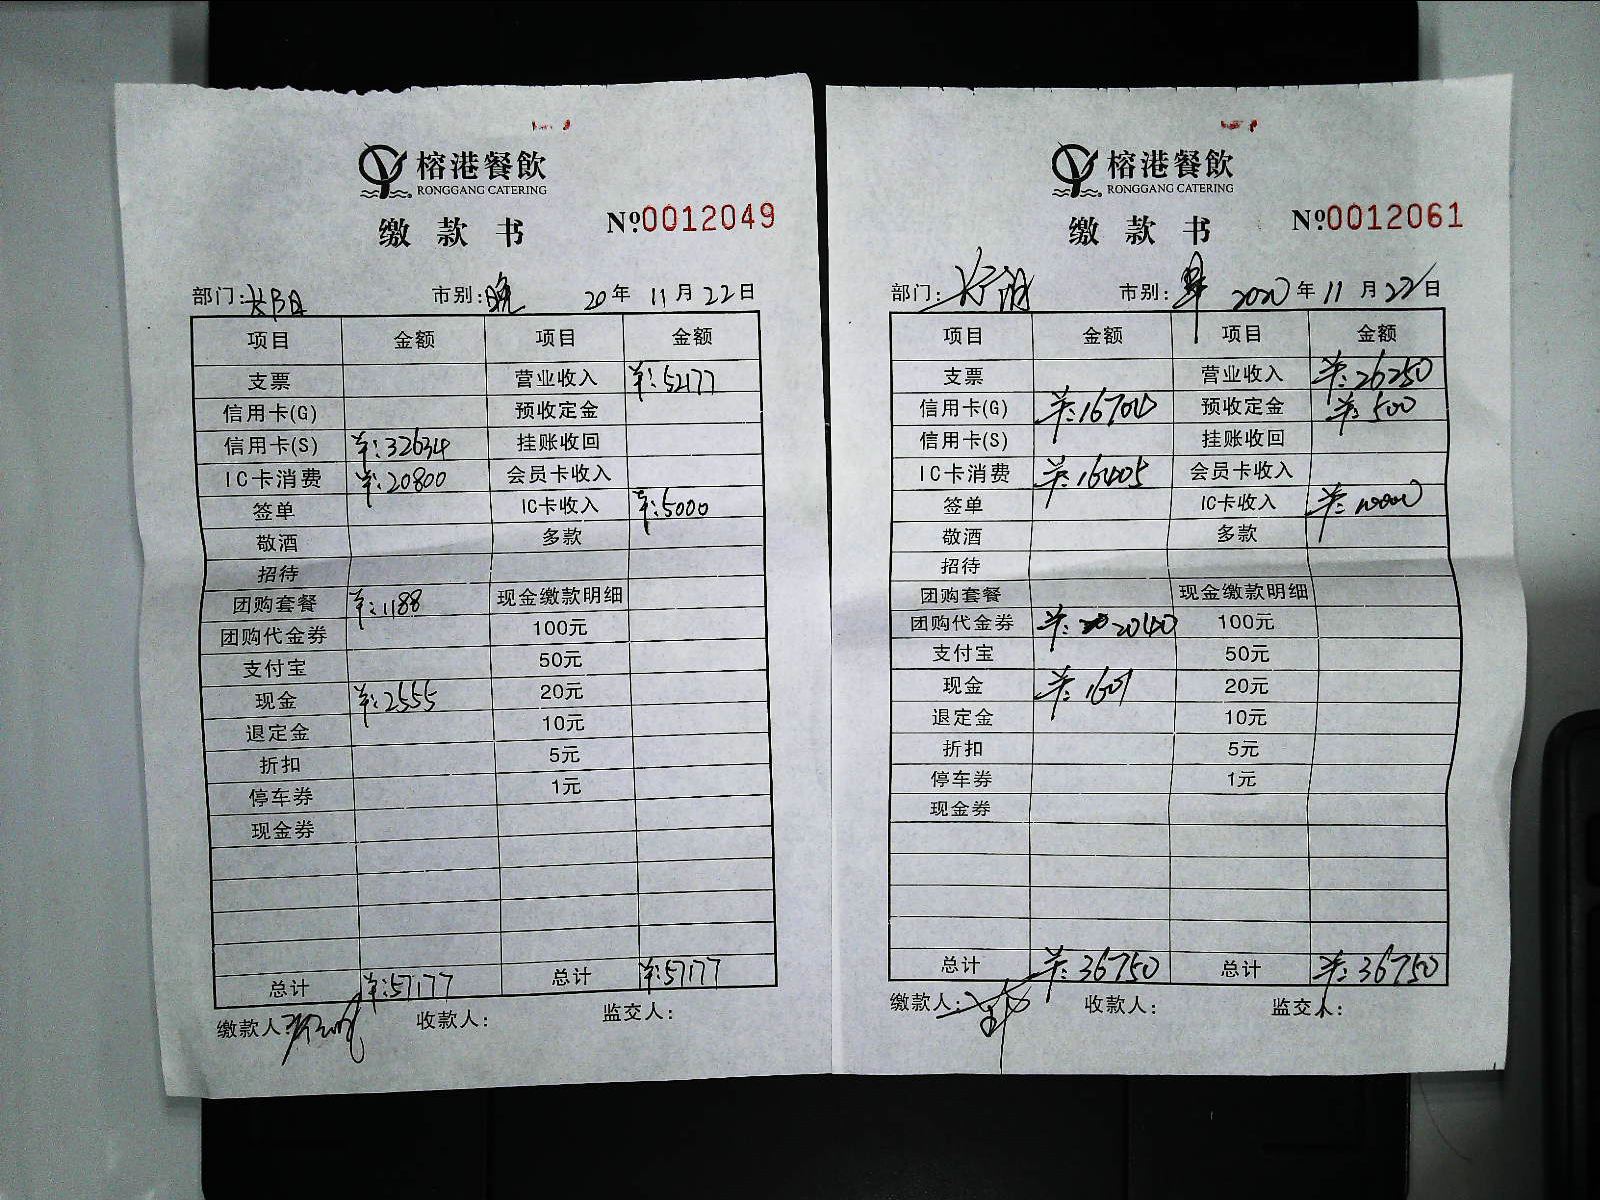 榕港餐飲
RONGGANG CATERING
缴款书 №0012049
部门: 长阳 市别: 晚 20年 11月 22日
项目 金额 项目 金额
支票 营业收入 ¥:52177
信用卡(G) 预收定金
信用卡(S) ¥:32634 挂账收回
IC卡消费 ¥:20800 会员卡收入
签单 IC卡收入 ¥:5000
敬酒 多款
招待
团购套餐 ¥:1188 现金缴款明细
团购代金券 100元
支付宝 50元
现金 ¥:2555 20元
退定金 10元
折扣 5元
停车券 1元
现金券
总计 ¥:57177 总计 ¥:57177
缴款人: 收款人: 监交人:
榕港餐飲
RONGGANG CATERING
缴款书 №0012061
部门: 市别: 早 2020年 11月 22日
项目 金额 项目 金额
支票 营业收入 ¥:26250
信用卡(G) ¥:16704 预收定金 ¥:500
信用卡(S) 挂账收回
IC卡消费 ¥:16405 会员卡收入
签单 IC卡收入 ¥:10000
敬酒 多款
招待
团购套餐 现金缴款明细
团购代金券 ¥:2040 100元
支付宝 50元
现金 ¥:1601 20元
退定金 10元
折扣 5元
停车券 1元
现金券
总计 ¥:36750 总计 ¥:36750
缴款人: 收款人: 监交人: